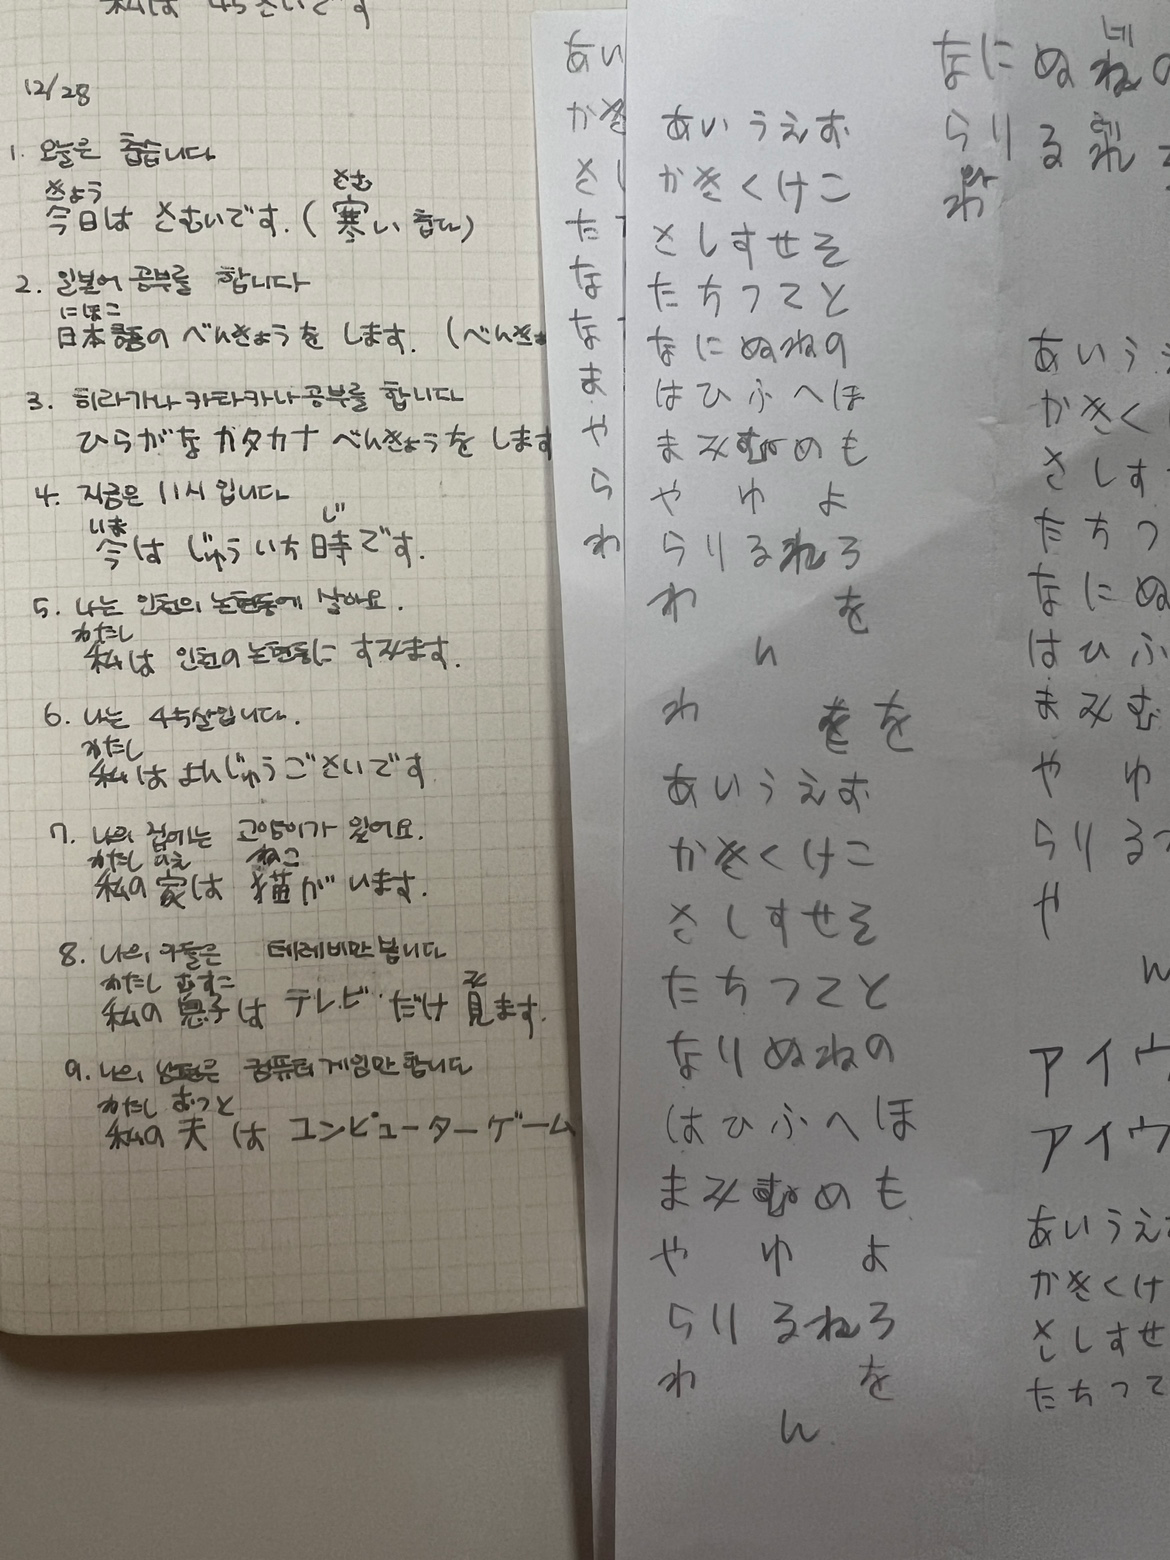 私は 45さいです
12/28
1. 오늘은 춥습니다
きょう さむ
今日は さむいです. (寒い 춥다)
2. 일본어 공부를 합니다
にほこ
日本語の べんきょうを します. (べんきょ
3. 히라가나 카타카나 공부를 합니다
ひらがな カタカナ べんきょうを します
4. 지금은 11시 입니다
いま じ
今は じゅういち 時です.
5. 나는 인천의 논현동에 살아요.
わたし
私は 인천の 논현동に すみます.
6. 나는 45살입니다.
わたし
私は よんじゅうごさいです
7. 나의 집에는 고양이가 있어요.
わたし いえ ねこ
私の 家は 猫が います.
8. 나의 아들은 테레비만 봅니다
わたし むすこ み
私の 息子は テレビ だけ 見ます.
9. 나의 남편은 컴퓨터 게임만 합니다
わたし おっと
私の 夫 は コンピューターゲーム
あい
かき
さし
た
な
な
ま
や
ら
わ
あいうえお
かきくけこ
さしすせそ
たちつてと
なにぬねの
はひふへほ
まみむめも
や ゆ よ
らりるれろ
わ を
ん
わ を を
あいうえお
かきくけこ
さしすせそ
たちつてと
なりぬねの
はひふへほ
まみむめも
や ゆ よ
らりるねろ
わ を
ん
네
なにぬねの
らりるれ
와
わ
あいう
かきく
さしす
たちつ
なにぬ
はひふ
まみむ
や ゆ
らりる
や
ん
アイウ
アイウ
あいうえ
かきくけ
さしすせ
たちつて